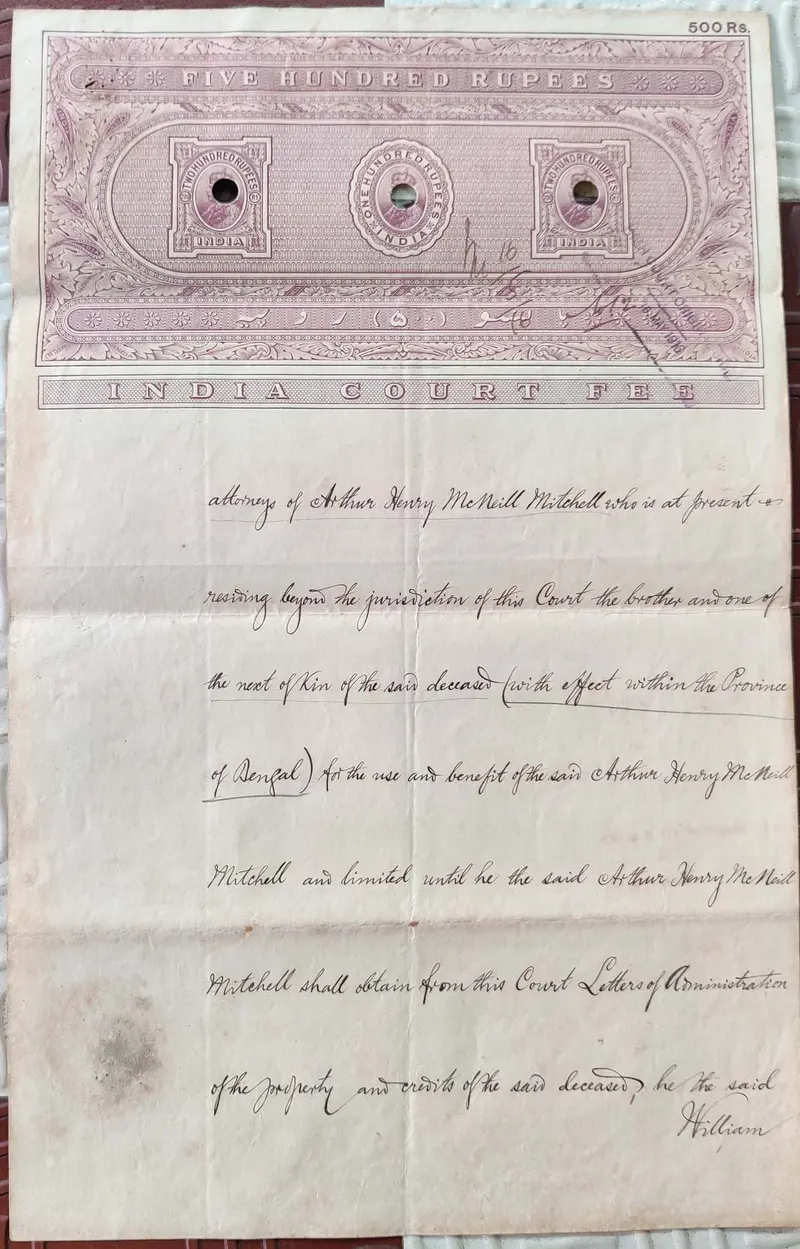 500 Rs.
FIVE HUNDRED RUPEES
TWO HUNDRED RUPEES
INDIA
ONE HUNDRED RUPEES
INDIA
TWO HUNDRED RUPEES
INDIA
16
(۵۰۰) روپیہ
INDIA COURT FEE
attorneys of Arthur Henry McNeill Mitchell who is at present
residing beyond the jurisdiction of this Court the brother and one of
the next of Kin of the said deceased (with effect within the Province
of Bengal) for the use and benefit of the said Arthur Henry McNeill
Mitchell and limited until he the said Arthur Henry McNeill
Mitchell shall obtain from this Court Letters of Administration
of the property and credits of the said deceased, he the said
William